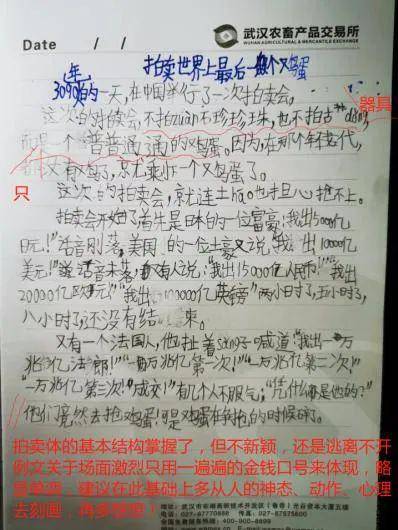 武汉农畜产品交易所
WUHAN AGRICULTURAL & MERCANTILE EXCHANGE
Date / /
拍卖世界上最后一个又鸟蛋
年
3090的一天,在中国举行了一次拍卖会。
这次的拍卖会,不拍zuàn不珍珍珠,也不拍古dǒng,
器具
而是一个普普通通的又鸟蛋。因为,在那个年代,
只
又有鸟了,就九乘下一个又鸟蛋了。
这次的拍卖会,就连土háo也担心抢不上。
拍卖会开始了首先是日本的一位富豪:我出5000亿
日元!"话音刚落,美国的一位土豪又说:我出10000亿
美元!"话音未落,有人说:"我出15000亿人民币!""我出
20000亿欧元!""我出100000亿英镑"两小时了,五小时了,
八小时了,还没有结束。
又有一个法国人,他扯着sǎng子喊道:"我出一万
兆亿法郎!""一万兆亿第一次!""一万兆亿第二次!"
"一万兆亿第三次!""成交!"有几个人不服气:"凭什么是他的?"
他们竟然去抢鸡蛋!可是又鸟蛋在争抢的时候碎了。
拍卖体的基本结构掌握了,但不新颖,还是逃离不开
例文关于场面激烈只用一遍遍的金钱口号来体现,略
显单调,建议在此基础上多从人的神态、动作、心理
去刻画,再多想想!